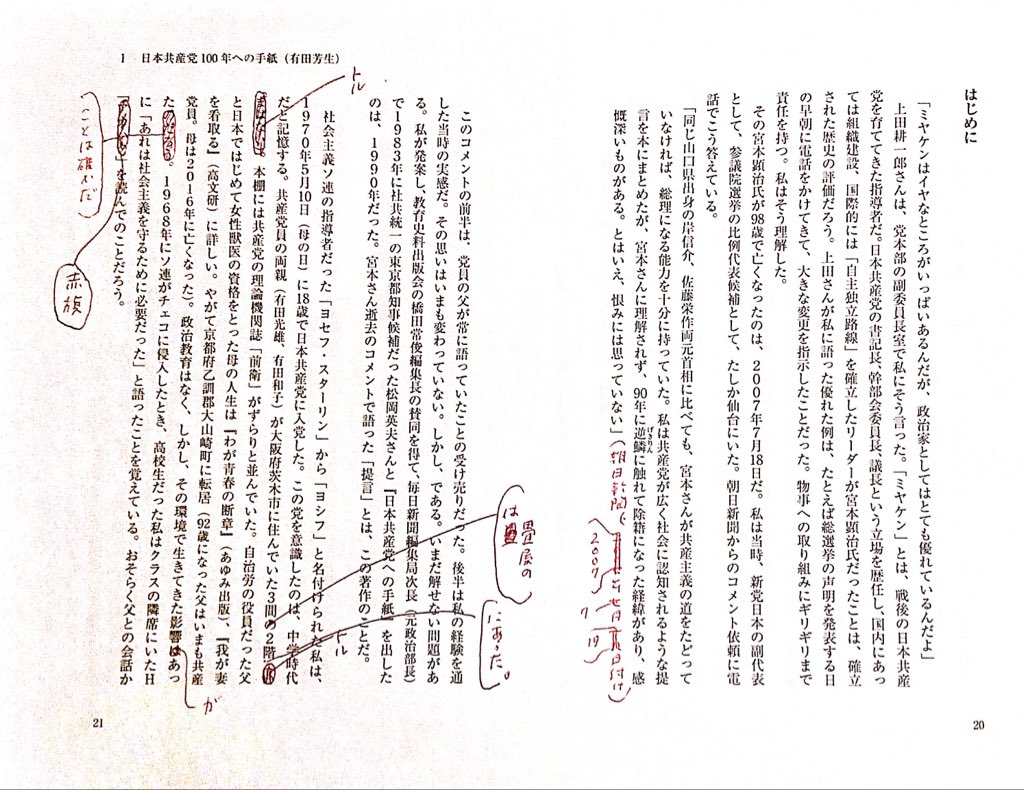 はじめに
「ミヤケンはイヤなところがいっぱいあるんだが、政治家としてはとても優れているんだよ」
上田耕一郎さんは、党本部の副委員長室で私にそう言った。「ミヤケン」とは、戦後の日本共産
党を育ててきた指導者だ。日本共産党の書記長、幹部会委員長、議長という立場を歴任し、国内にあっ
ては組織建設、国際的には「自主独立路線」を確立したリーダーが宮本顕治氏だったことは、確立
された歴史の評価だろう。上田さんが私に語った優れた例は、たとえば総選挙の声明を発表する日
の早朝に電話をかけてきて、大きな変更を指示したことだった。物事への取り組みにギリギリまで
責任を持つ。私はそう理解した。
その宮本顕治氏が98歳で亡くなったのは、2007年7月18日だ。私は当時、新党日本の副代表
として、参議院選挙の比例代表候補として、たしか仙台にいた。朝日新聞からのコメント依頼に電
話でこう答えている。
「同じ山口県出身の岸信介、佐藤栄作両元首相に比べても、宮本さんが共産主義の道をたどって
いなければ、総理になる能力を十分に持っていた。私は共産党が広く社会に認知されるような提
言を本にまとめたが、宮本さんに理解されず、90年に逆鱗に触れて除籍になった経緯があり、感
げきりん
慨深いものがある。とはいえ、恨みには思っていない」
(朝日新聞、
2007
7
19
日付け)
20
1 日本共産党100年への手紙(有田芳生)
このコメントの前半は、党員の父が常に語っていたことの受け売りだった。後半は私の経験を通
した当時の実感だ。その思いはいまも変わっていない。しかし、である。いまだ解せない問題があ
る。私が発案し、教育史料出版会の橋田常俊編集長の賛同を得て、毎日新聞編集局次長(元政治部長)
で1983年に社共統一の東京都知事候補だった松岡英夫さんと『日本共産党への手紙』を出した
のは、1990年だった。宮本さん逝去のコメントで語った「提言」とは、この著作のことだ。
社会主義ソ連の指導者だった「ヨセフ・スターリン」から「ヨシフ」と名付けられた私は、
1970年5月10日(母の日)に18歳で日本共産党に入党した。この党を意識したのは、中学時代
だと記憶する。共産党員の両親(有田光雄、有田和子)が大阪府茨木市に住んでいた3間の2階
本棚には共産党の理論機関誌「前衛」がずらりと並んでいた。自治労の役員だった父
と日本ではじめて女性獣医の資格をとった母の人生は『わが青春の断章』(あゆみ出版)、『我が妻
を看取る』(高文研)に詳しい。やがて京都府乙訓郡大山崎町に転居(92歳になった父はいまも共産
党員。母は2016年に亡くなった)。政治教育はなく、しかし、その環境で生きてきた影響はあっ
た。1968年にソ連がチェコに侵入したとき、高校生だった私はクラスの隣席にいたH
に「あれは社会主義を守るために必要だった」と語ったことを覚えている。おそらく父との会話か
」を読んでのことだろう。
トル
畳屋の
は
にあった。
トル
が
ことは確かだ
赤旗
21